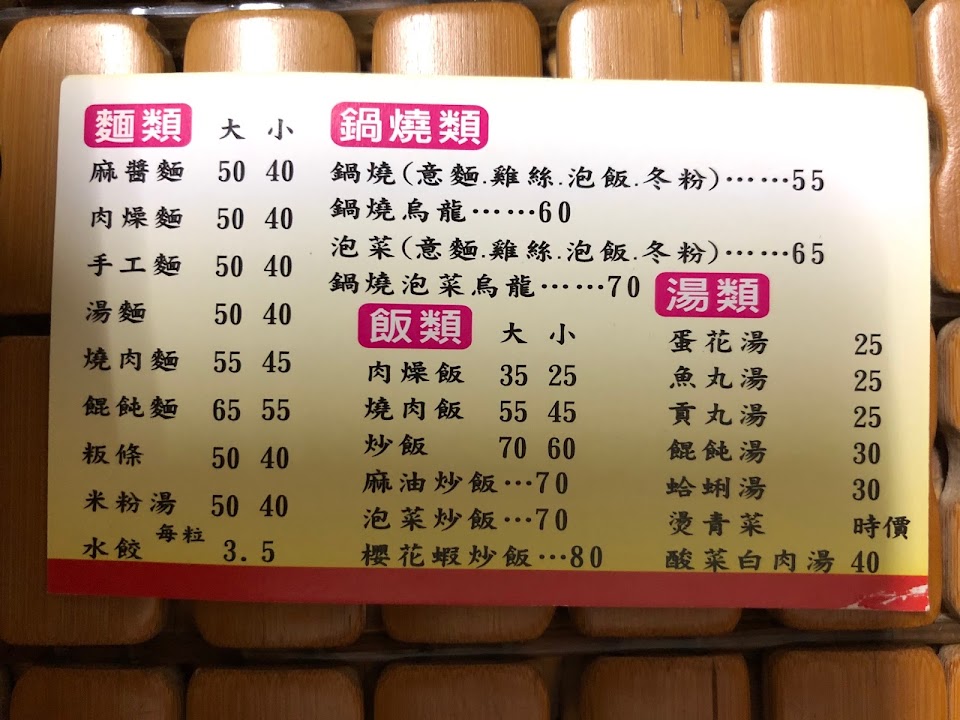 麵類 大 小
麻醬麵 50 40
肉燥麵 50 40
手工麵 50 40
湯麵 50 40
燒肉麵 55 45
餛飩麵 65 55
粄條 50 40
米粉湯 50 40
水餃 每粒 3.5
鍋燒類
鍋燒(意麵.雞絲.泡飯.冬粉)……55
鍋燒烏龍……60
泡菜(意麵.雞絲.泡飯.冬粉)……65
鍋燒泡菜烏龍……70
飯類 大 小
肉燥飯 35 25
燒肉飯 55 45
炒飯 70 60
麻油炒飯…70
泡菜炒飯…70
櫻花蝦炒飯…80
湯類
蛋花湯 25
魚丸湯 25
貢丸湯 25
餛飩湯 30
蛤蜊湯 30
燙青菜 時價
酸菜白肉湯 40